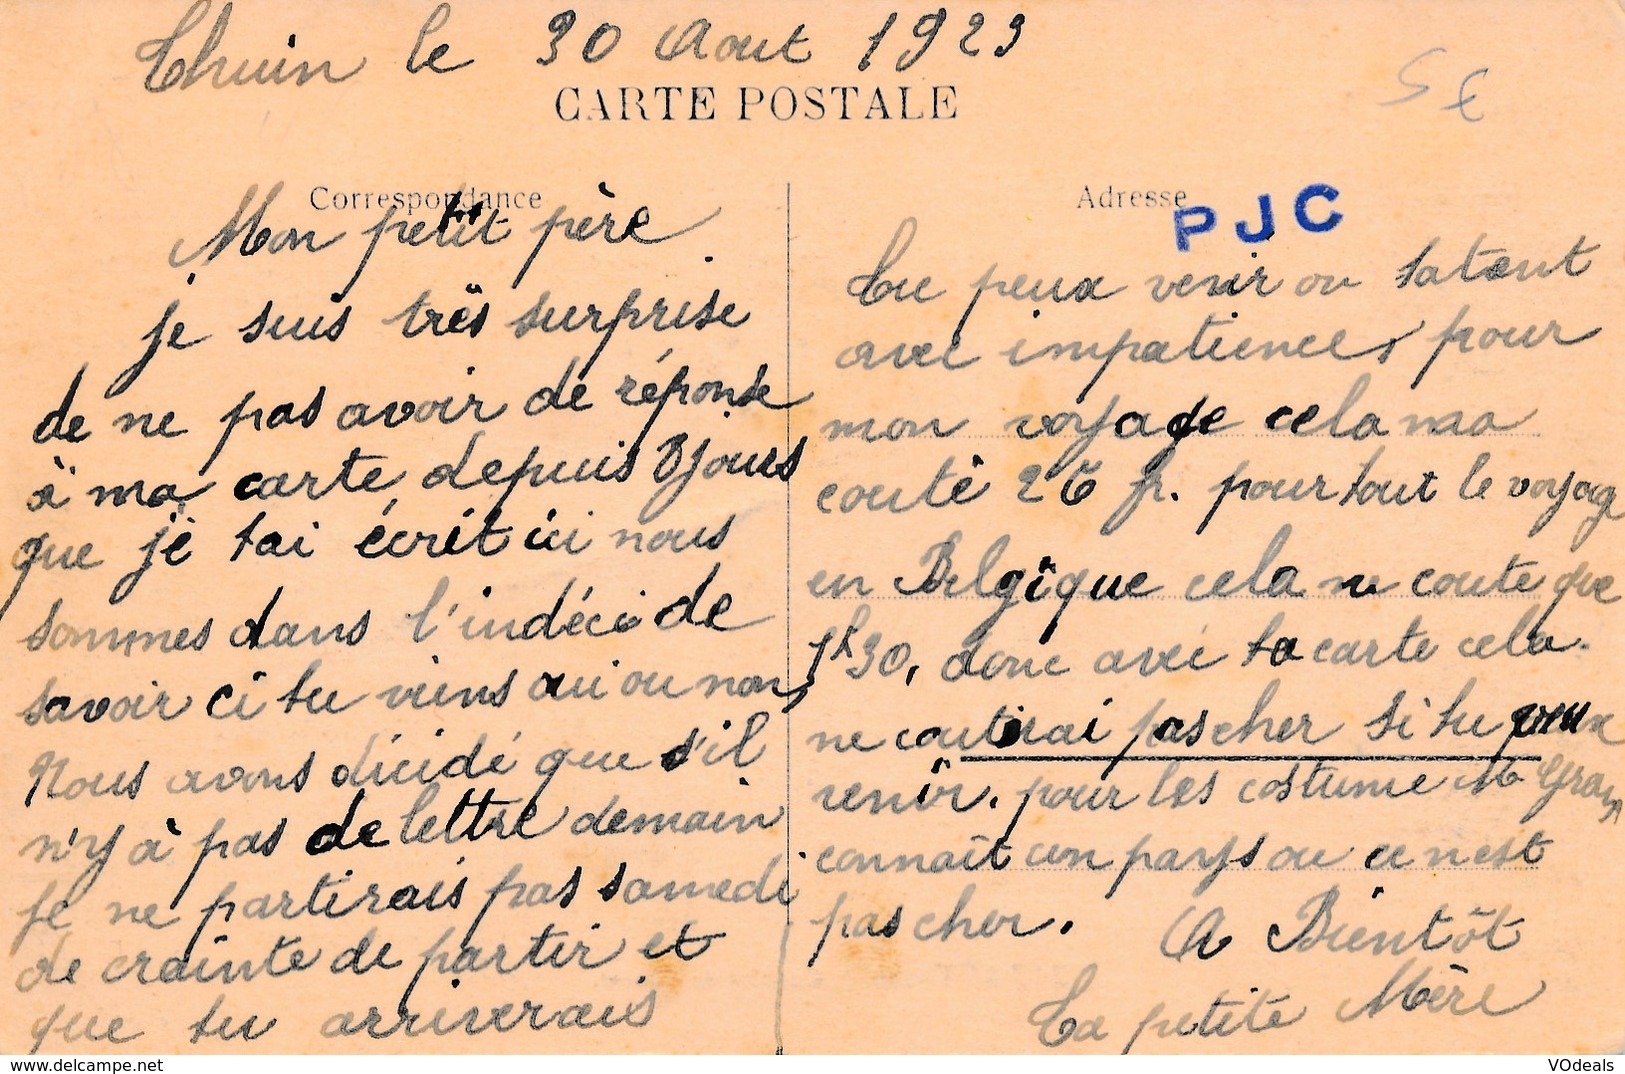 Thuin le 30 Aout 1923
CARTE POSTALE
5 €
Correspondance
Mon petit père
je suis très surprise
de ne pas avoir de réponse
à ma carte depuis 8 jours
que je tai écrit ici nous
sommes dans l'indéci de
savoir ci tu viens oui ou non,
Nous avons décidé que s'il
n'y à pas de lettre demain
je ne partirais pas samedi
de crainte de partir et
que tu arriverais
Adresse
PJC
Tu peux venir on tatent
avec impatience, pour
mon voyage cela ma
couté 26 fr. pour tout le voyag
en Belgique cela ne coute que
1f 30, donc avec ta carte cela
ne coutirai pas cher si tu veux
venir. pour les costume Mr
connaît un pays ou ce n'est
pas cher. A Bientôt
Ta petite Mère
VOdeals